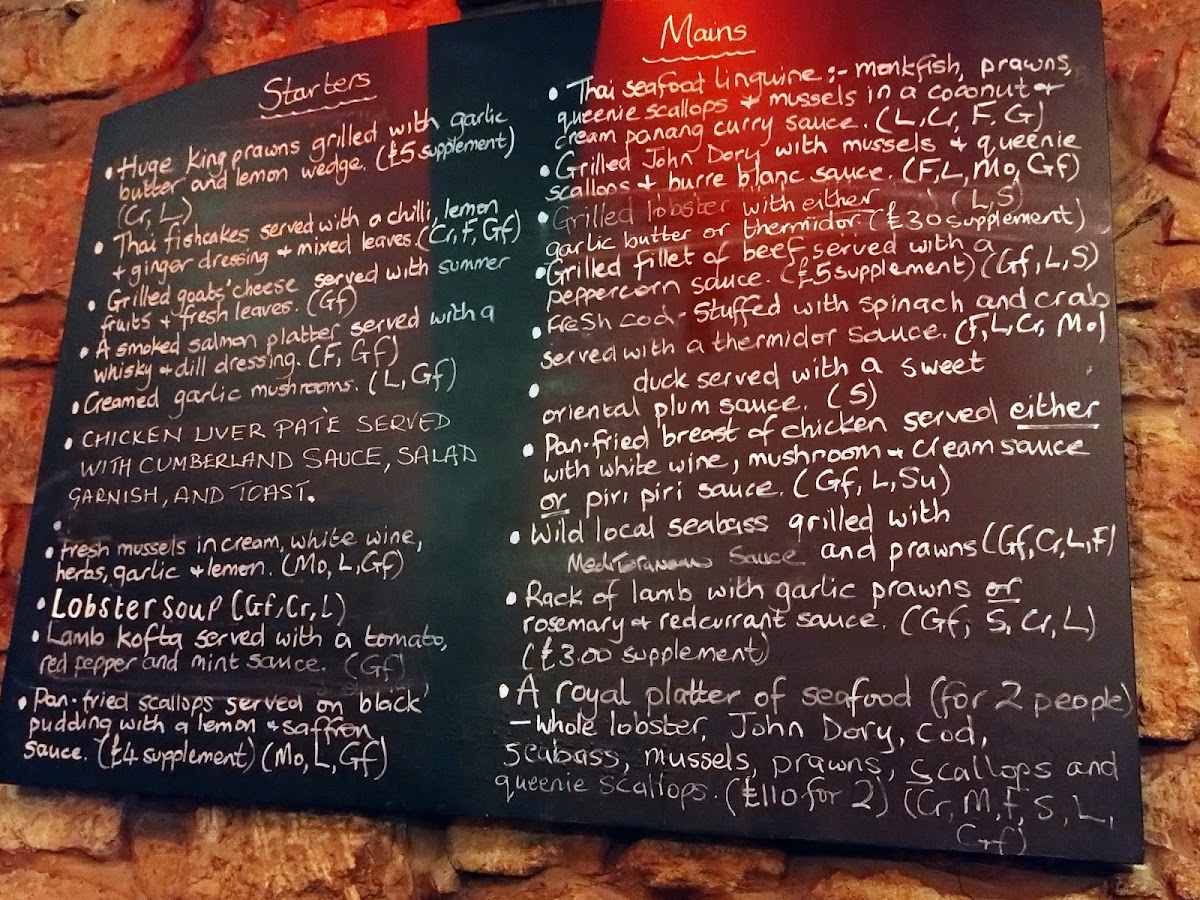 Starters
• Huge king prawns grilled with garlic
butter and lemon wedge. (£5 supplement)
(Cr, L)
• Thai fishcakes served with a chilli, lemon
+ ginger dressing + mixed leaves. (Cr, F, Gf)
• Grilled goats' cheese served with summer
fruits + fresh leaves. (Gf)
• A smoked salmon platter served with a
whisky + dill dressing. (F, Gf)
• Creamed garlic mushrooms. (L, Gf)
• CHICKEN LIVER PATÈ SERVED
WITH CUMBERLAND SAUCE, SALAD
GARNISH, AND TOAST.
•
• Fresh mussels in cream, white wine,
herbs, garlic + lemon. (Mo, L, Gf)
• Lobster soup (Gf, Cr, L)
• Lamb kofta served with a tomato,
red pepper and mint sauce. (Gf)
• Pan-fried scallops served on black
pudding with a lemon + saffron
sauce. (£4 supplement) (Mo, L, Gf)
Mains
• Thai seafood linguine :- monkfish, prawns,
queenie scallops + mussels in a coconut +
cream panang curry sauce. (L, Cr, F, G)
• Grilled John Dory with mussels + queenie
scallops + burre blanc sauce. (F, L, Mo, Gf)
• Grilled lobster with either (L, S)
garlic butter or thermidor (£30 supplement)
• Grilled fillet of beef served with a
peppercorn sauce. (£5 supplement) (Gf, L, S)
• Fresh cod - stuffed with spinach and crab
served with a thermidor sauce. (F, L, Cr, Mo)
• duck served with a sweet
oriental plum sauce. (S)
• Pan-fried breast of chicken served either
with white wine, mushroom + cream sauce
or piri piri sauce. (Gf, L, Su)
• Wild local seabass grilled with
Mediteranean Sauce and prawns (Gf, Cr, L, F)
• Rack of lamb with garlic prawns or
rosemary + redcurrant sauce. (Gf, S, Cr, L)
(£3.00 supplement)
• A royal platter of seafood (for 2 people)
- whole lobster, John Dory, cod,
seabass, mussels, prawns, scallops and
queenie scallops. (£110 for 2) (Cr, M, F, S, L,
Gf)